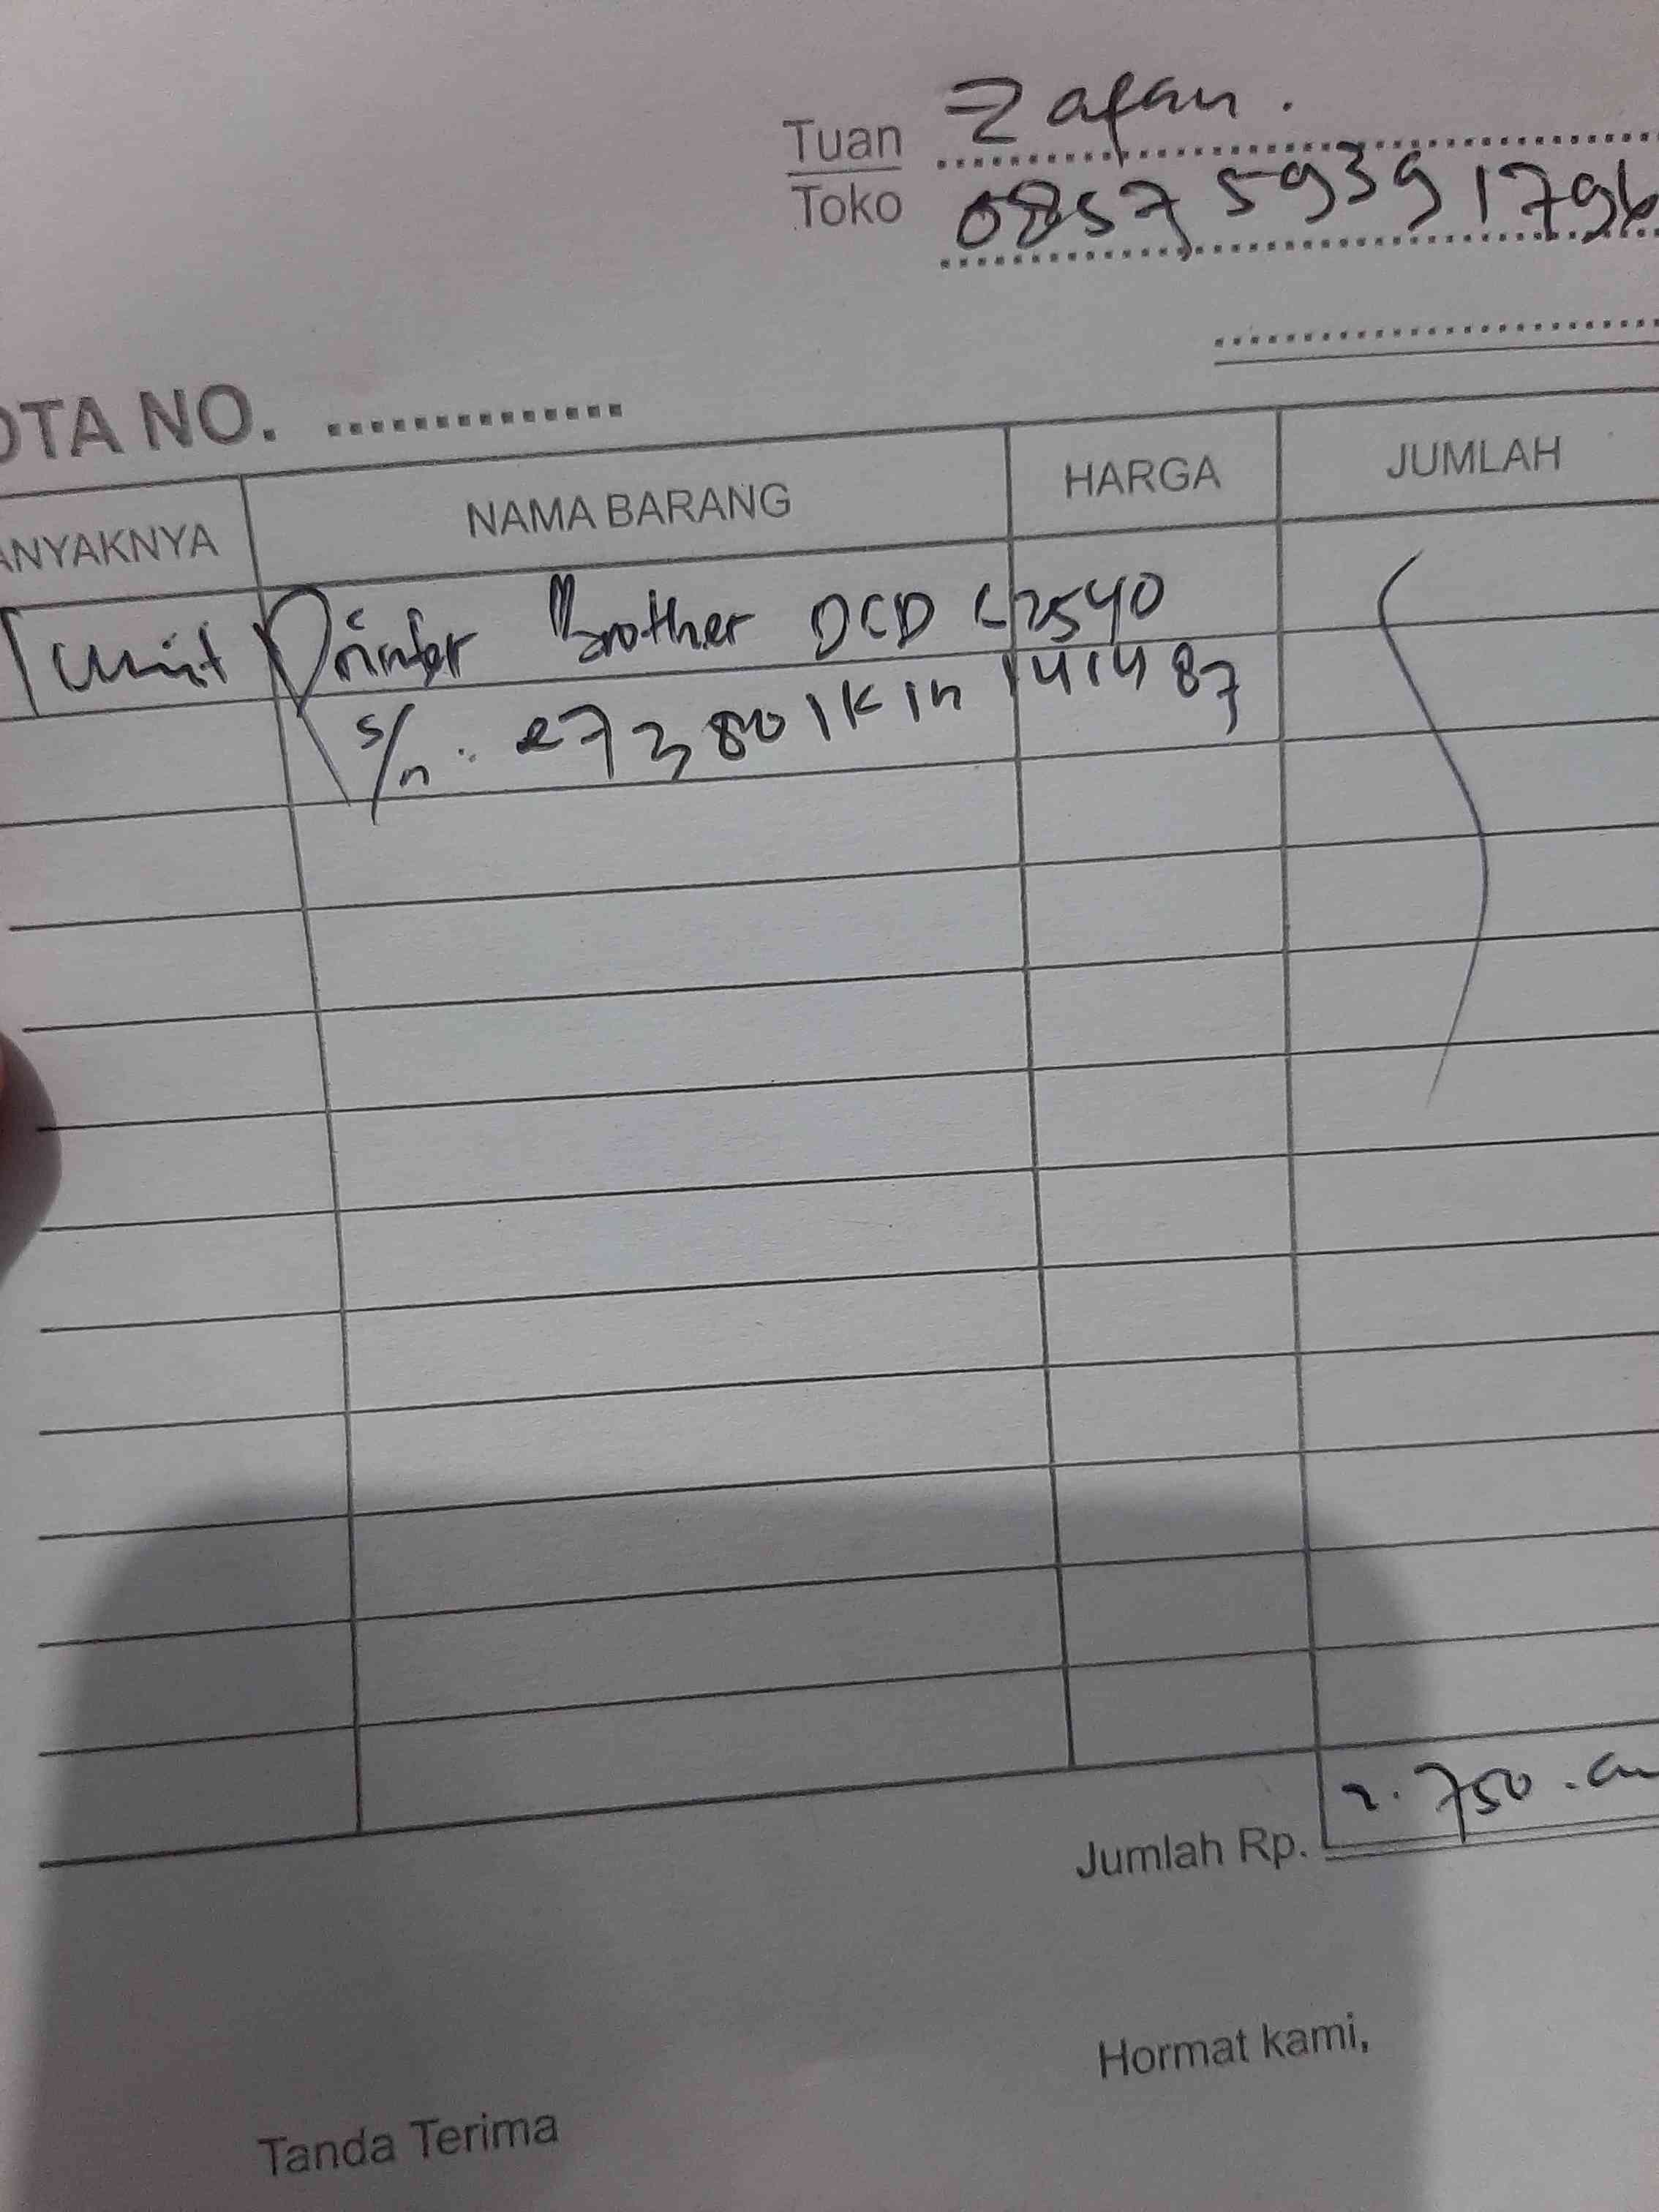 Tuan Zafan.
Toko 0857 5939 1796
OTA NO. ..............
ANYAKNYA NAMA BARANG HARGA JUMLAH
1 unit Printer Brother DCP L2540
s/n : e73801K1n141487
Jumlah Rp. 2.750.000
Hormat kami,
Tanda Terima